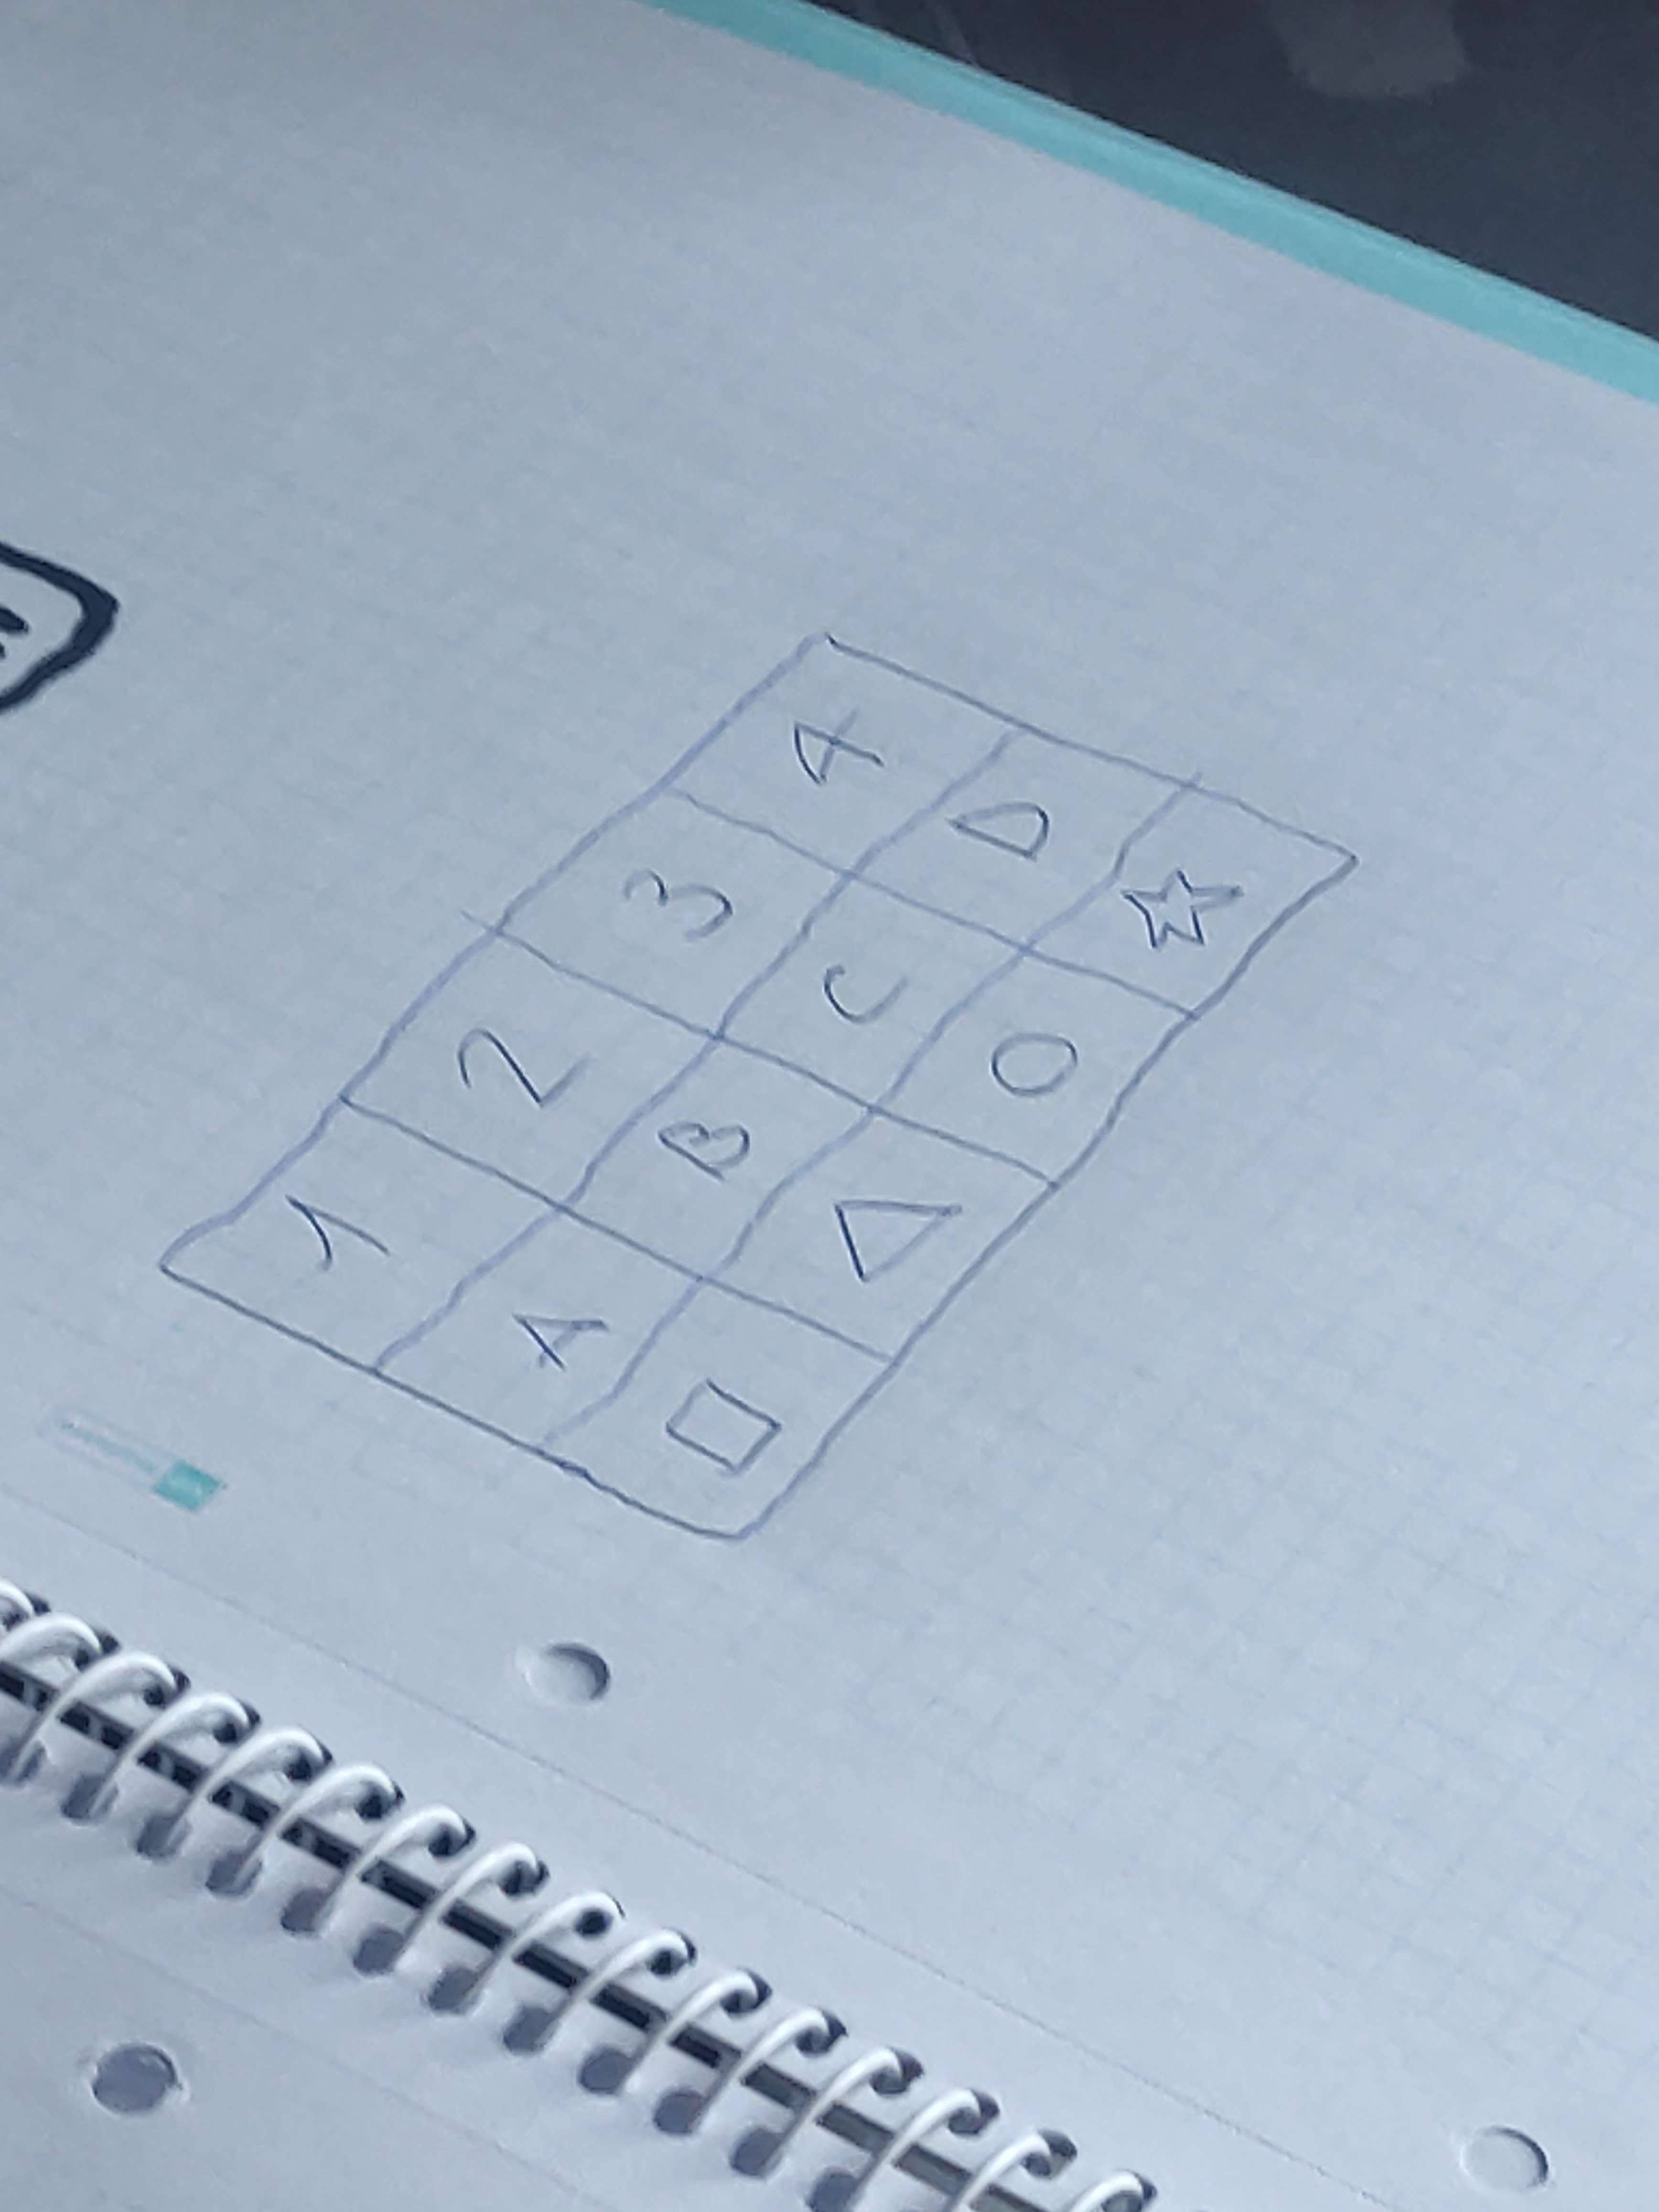 1 2 3 4
A B C D
□ △ ○ ☆